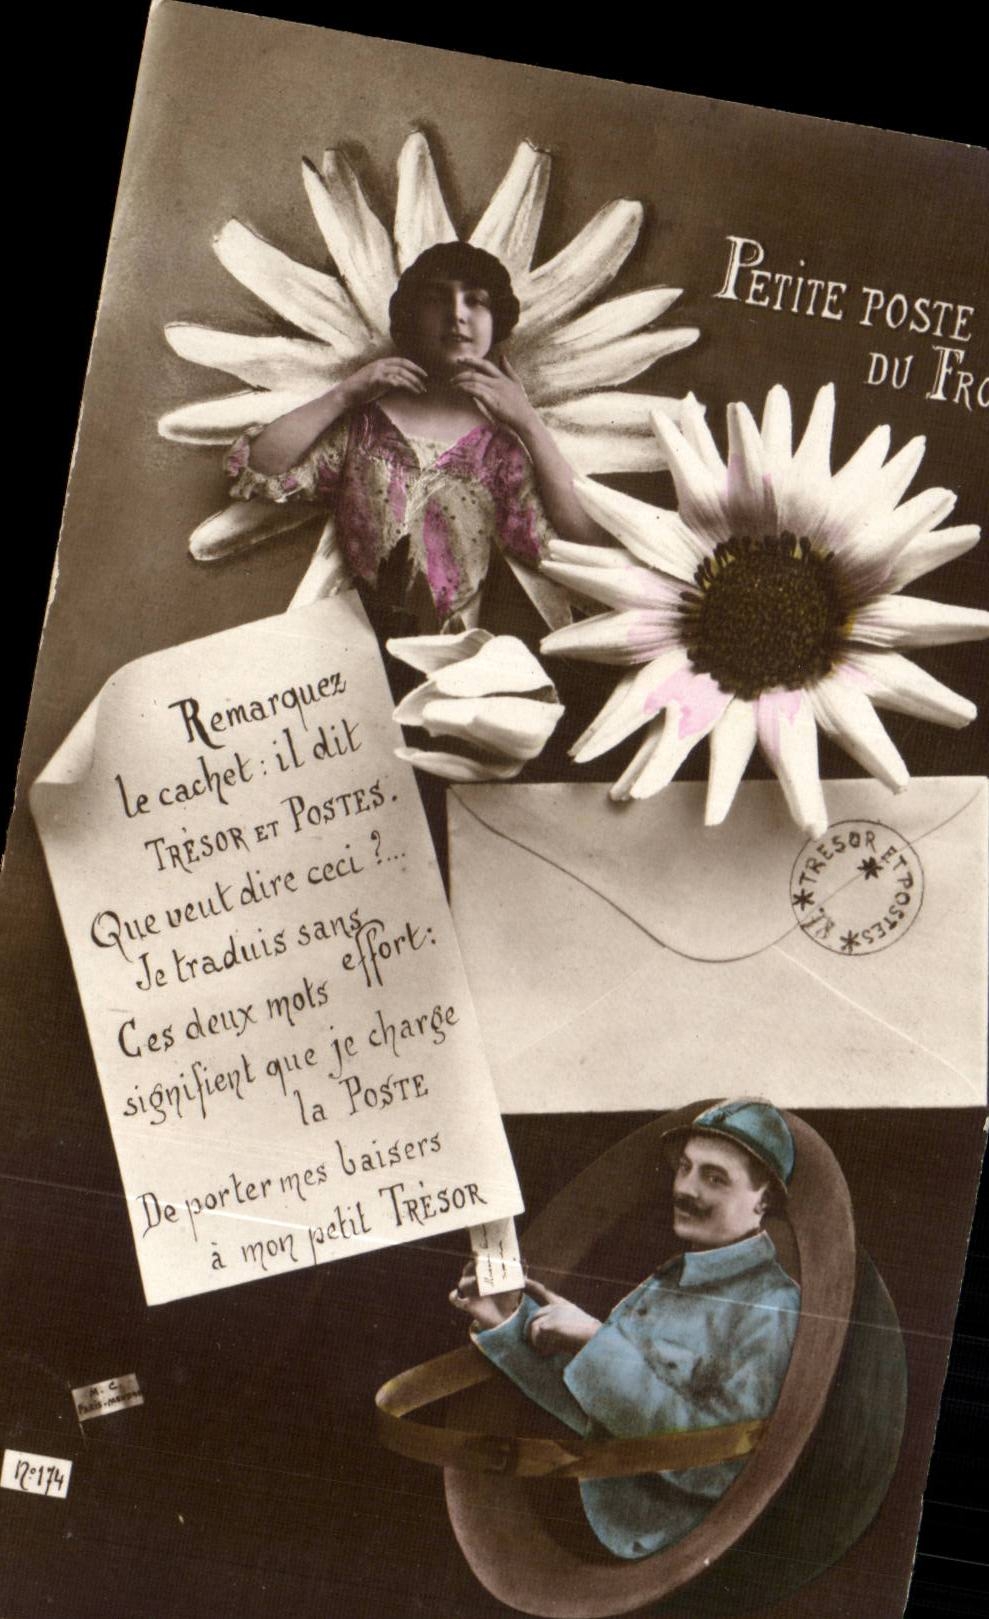 PETITE POSTE
DU FRO
Remarquez
le cachet: il dit
TRÉSOR ET POSTES.
Que veut dire ceci ?...
Je traduis sans
effort:
Ces deux mots
signifient que je charge
la POSTE
De porter mes baisers
à mon petit TRÉSOR
TRESOR ET POSTES
M. C.
N° 174